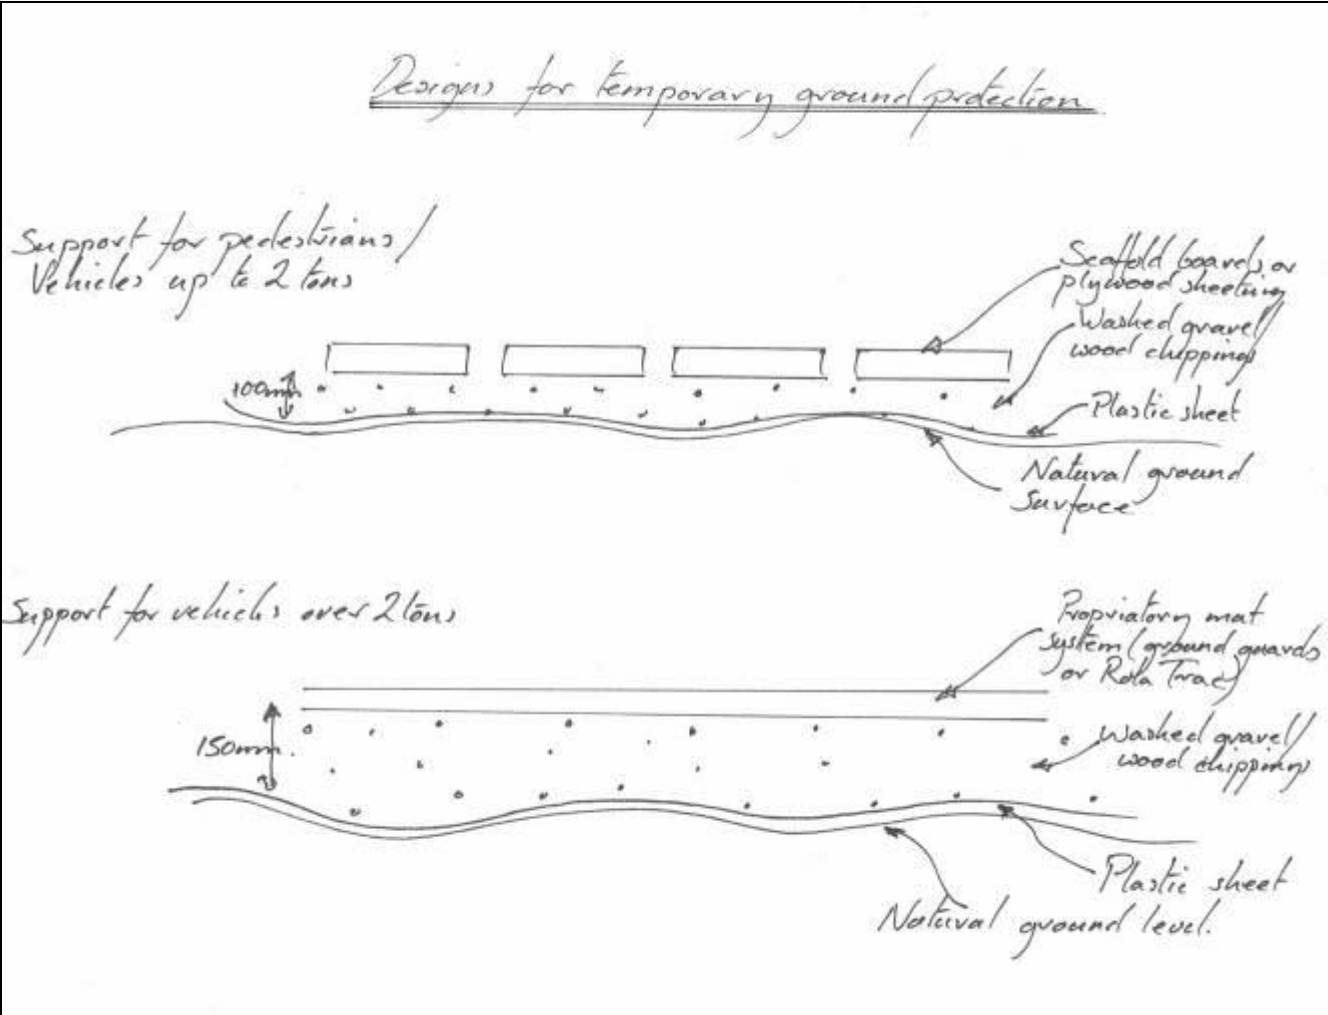 Designs for temporary ground protection
Support for pedestrians/
Vehicles up to 2 tons
Scaffold boards or
plywood sheeting
Washed gravel/
wood chippings
100mm
Plastic sheet
Natural ground
surface
Support for vehicles over 2 tons
Propriatory mat
system (ground guards
or Rola Trac)
150mm.
Washed gravel/
wood chippings
Plastic sheet
Natural ground level.